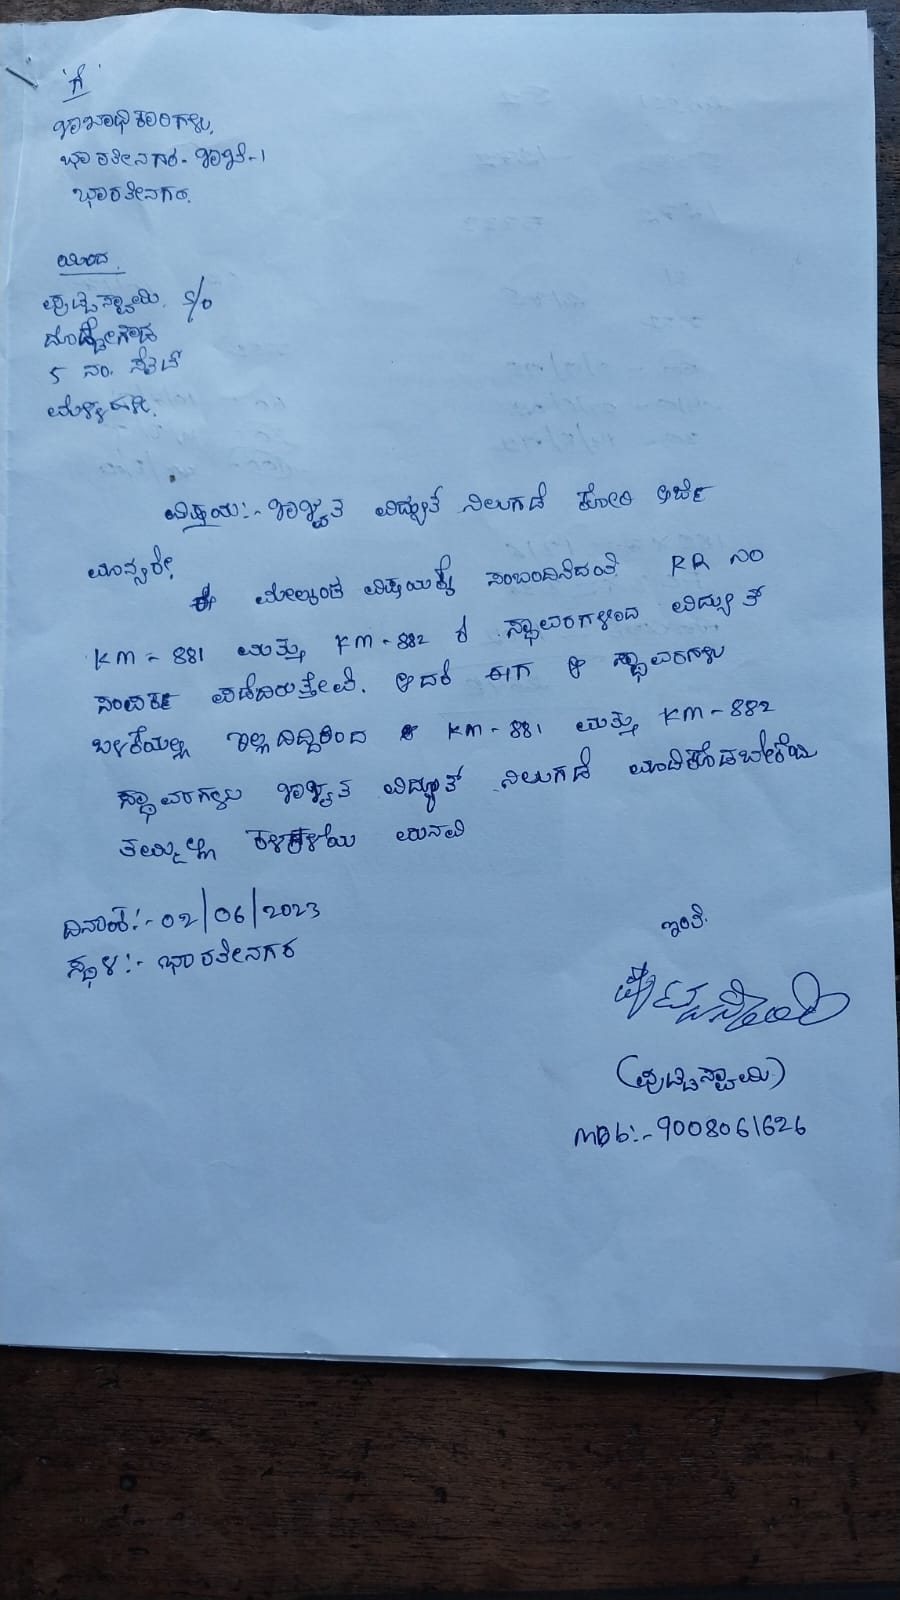 'ಗೆ'
ಶಾಖಾಧಿಕಾರಿಗಳು,
ಭಾರತೀನಗರ ಶಾಖೆ-1
ಭಾರತೀನಗರ.
ಯಿಂದ,
ಪುಟ್ಟಸ್ವಾಮಿ. S/o
ದೊಡ್ಡೇಗೌಡ
5 ನಂ. ಸೈಟ್
ಮೆಳ್ಳಹಳ್ಳಿ.
ವಿಷ್ಯಯ:- ಶಾಶ್ವತ ವಿದ್ಯುತ್ ನಿಲುಗಡೆ ಕೋರಿ ಅರ್ಜಿ
ಮಾನ್ಯರೇ,
ಈ ಮೇಲ್ಕಂಡ ವಿಷ್ಯಯಕ್ಕೆ ಸಂಬಂದಿಸಿದಂತೆ RR ನಂ
KM - 881 ಮತ್ತು KM - 882 ರ ಸ್ಥಾವರಗಳಿಂದ ವಿದ್ಯುತ್
ಸಂಪರ್ಕ ಪಡೆದಿರುತ್ತೇವೆ. ಆದರೆ ಈಗ ಆ ಸ್ಥಾವರಗಳು
ಬಳಕೆಯಲ್ಲಿ ಇಲ್ಲದಿದ್ದರಿಂದ KM - 881 ಮತ್ತು KM - 882
ಸ್ಥಾವರಗಳು ಶಾಶ್ವತ ವಿದ್ಯುತ್ ನಿಲುಗಡೆ ಮಾಡಿಕೊಡಬೇಕೆಂದು
ತಮ್ಮಲ್ಲಿ ಕಳಕಳಿಯ ಮನವಿ
ದಿನಾಂಕ:- 02/06/2023
ಸ್ಥಳ:- ಭಾರತೀನಗರ
ಇಂತಿ.
ಪುಟ್ಟಸ್ವಾಮಿ
(ಪುಟ್ಟಸ್ವಾಮಿ)
MOb:- 9008061626